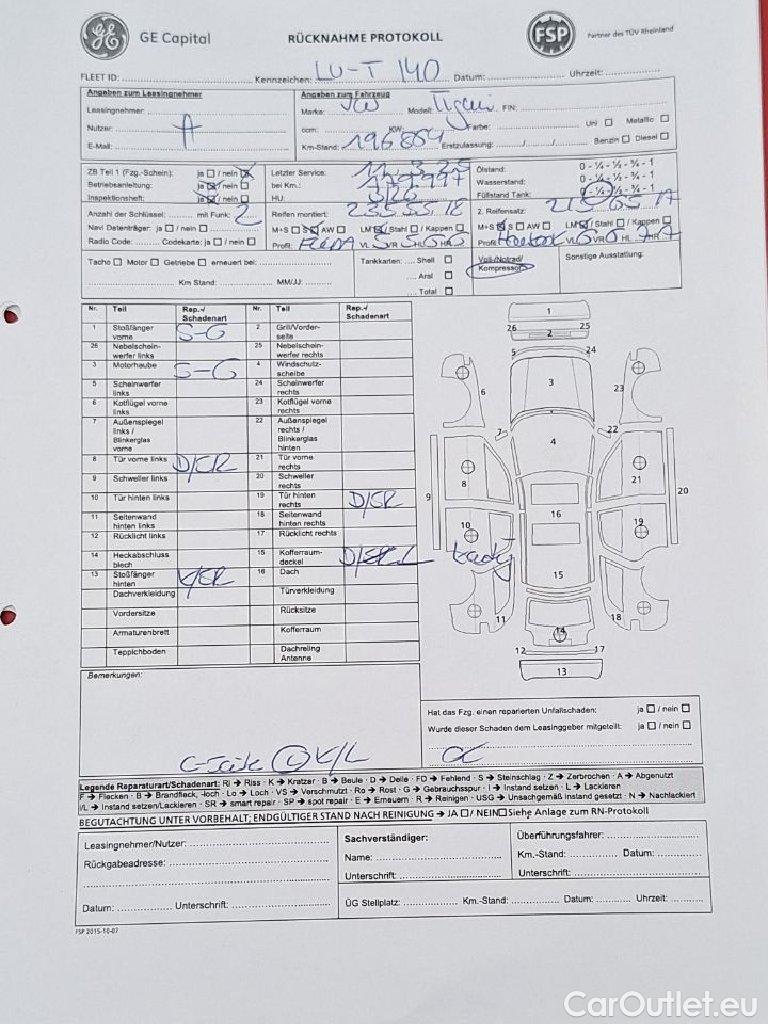 GE Capital RÜCKNAHME PROTOKOLL FSP Partner des TÜV Rheinland
FLEET ID: Kennzeichen: LU-T 140 Datum: Uhrzeit:
Angaben zum Leasingnehmer
Leasingnehmer
Nutzer:
E-Mail:
Angaben zum Fahrzeug
Marke: VW Modell: Tiguan FIN:
ccm: KW: Farbe: Uni Metallic
Km-Stand: 196884 Erstzulassung: Benzin Diesel
ZB Teil 1 (Fzg.-Schein): ja / nein
Betriebsanleitung: ja / nein
Inspektionsheft: ja / nein
Anzahl der Schlüssel: mit Funk: 2
Navi Datenträger: ja / nein
Radio Code: Codekarte: ja / nein
Letzter Service:
bei Km.:
HU:
Reifen montiert: 235 55 18
M+S S AW LM / Stahl / Kappen
Profil: VL VR
Ölstand: 0 - ¼ - ½ - ¾ - 1
Wasserstand: 0 - ¼ - ½ - ¾ - 1
Füllstand Tank: 0 - ¼ - ½ - ¾ - 1
2. Reifensatz: 215 65 17
M+S S AW LM / Stahl / Kappen
Profil VL VR HL HR
Tacho Motor Getriebe erneuert bei:
Km Stand: MM/JJ:
Tankkarten: Shell
Aral
Total
Voll-/Notrad/
Kompressor
Sonstige Ausstattung:
Nr. Teil Rep.-/ Schadenart Nr. Teil Rep.-/ Schadenart
1 Stoßfänger vorne S-G 2 Grill/Vorderseite
26 Nebelscheinwerfer links 25 Nebelscheinwerfer rechts
3 Motorhaube S-G 4 Windschutzscheibe
5 Scheinwerfer links 24 Scheinwerfer rechts
6 Kotflügel vorne links 23 Kotflügel vorne rechts
7 Außenspiegel links / Blinkerglas vorne 22 Außenspiegel rechts / Blinkerglas hinten
8 Tür vorne links D/SR 21 Tür vorne rechts
9 Schweller links 20 Schweller rechts
10 Tür hinten links 19 Tür hinten rechts D/SR
11 Seitenwand hinten links 18 Seitenwand hinten rechts
12 Rücklicht links 17 Rücklicht rechts
14 Heckabschlussblech 15 Kofferraumdeckel
13 Stoßfänger hinten K/SR 16 Dach
Dachverkleidung Türverkleidung
Vordersitze Rücksitze
Armaturenbrett Kofferraum
Teppichboden Dachreling Antenne
1
26 25
2
24
3
6 23
7 22
4
8 21
9 20
16
10 19
15
11 18
14
12 17
13
Bemerkungen:
Hat das Fzg. einen reparierten Unfallschaden: ja / nein
Wurde dieser Schaden dem Leasinggeber mitgeteilt: ja / nein
Legende Reparaturart/Schadenart: Ri → Riss · K → Kratzer · B → Beule · D → Delle · FD → Fehlend · S → Steinschlag · Z → Zerbrochen · A → Abgenutzt
F → Flecken · B → Brandfleck, -loch · Lo → Loch · VS → Verschmutzt · Ro → Rost · G → Gebrauchsspur · I → Instand setzen · L → Lackieren
I/L → Instand setzen/Lackieren · SR → smart repair · SP → spot repair · E → Erneuern · R → Reinigen · USG → Unsachgemäß instand gesetzt · N → Nachlackiert
BEGUTACHTUNG UNTER VORBEHALT; ENDGÜLTIGER STAND NACH REINIGUNG → JA / NEIN Siehe Anlage zum RN-Protokoll
Leasingnehmer/Nutzer:
Rückgabeadresse:
Datum: Unterschrift:
Sachverständiger:
Name:
Unterschrift:
Überführungsfahrer:
Km.-Stand: Datum:
Unterschrift:
ÜG Stellplatz: Km.-Stand: Datum: Uhrzeit:
FSP 2015-10-07
CarOutlet.eu